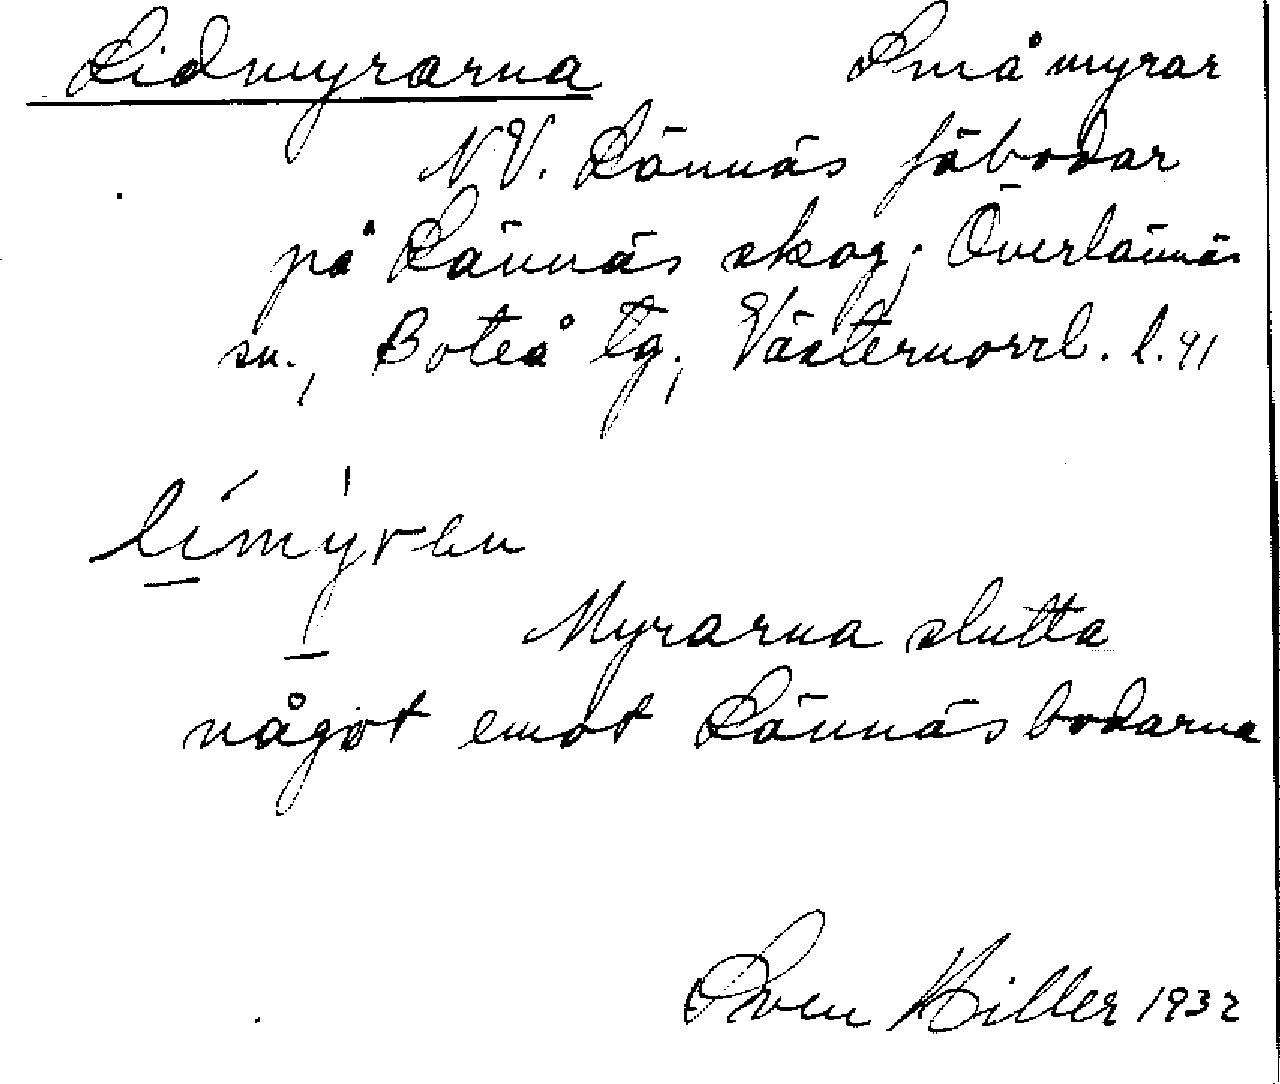 Lidmyrarna Små myrar
NV. Lännäs fäbodar
på Lännäs skog; Överlännäs
sn., Boteå tg., Västernorrl. l. 41
límýren
Myrarna slutta
något emot Lännäsbodarna
Sven Hiller 1932